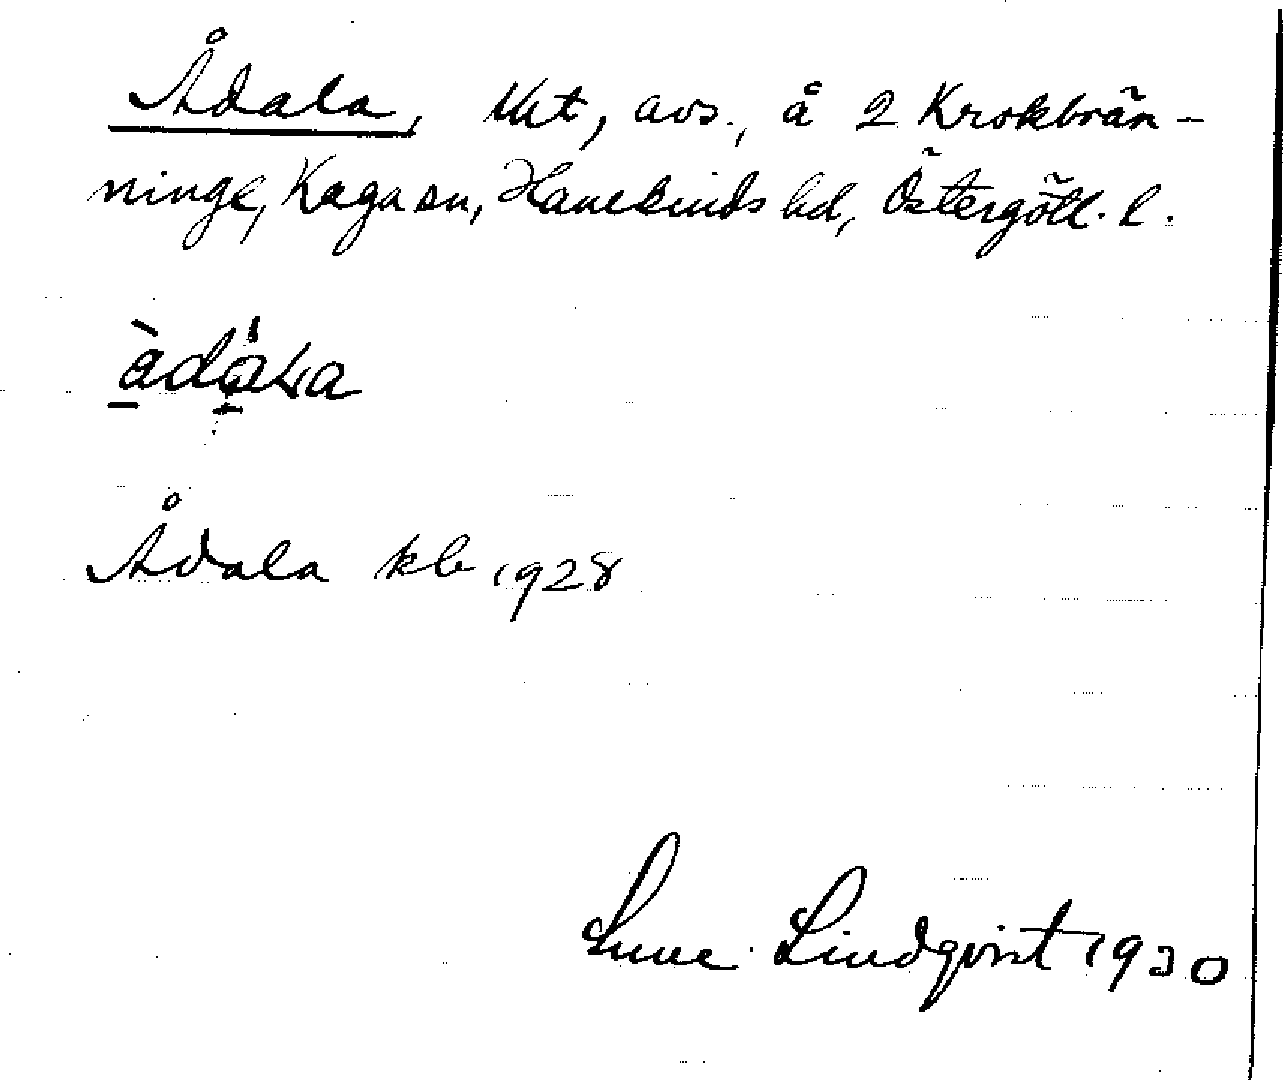 Ådala, lht, avs., å 2 Krokbrän-
ninge, Kaga sn, Hanekinds hd, Östergötl. l.
Ådala kb 1928
Sune Lindqvist 1930